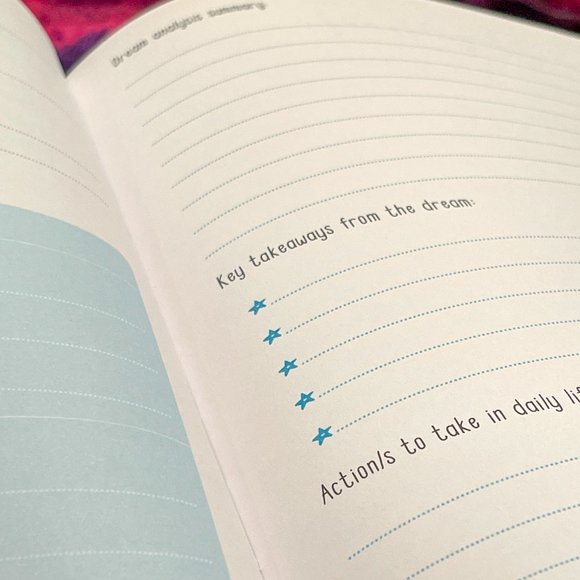 Dream analysis summary
Key takeaways from the dream:
Action/s to take in daily